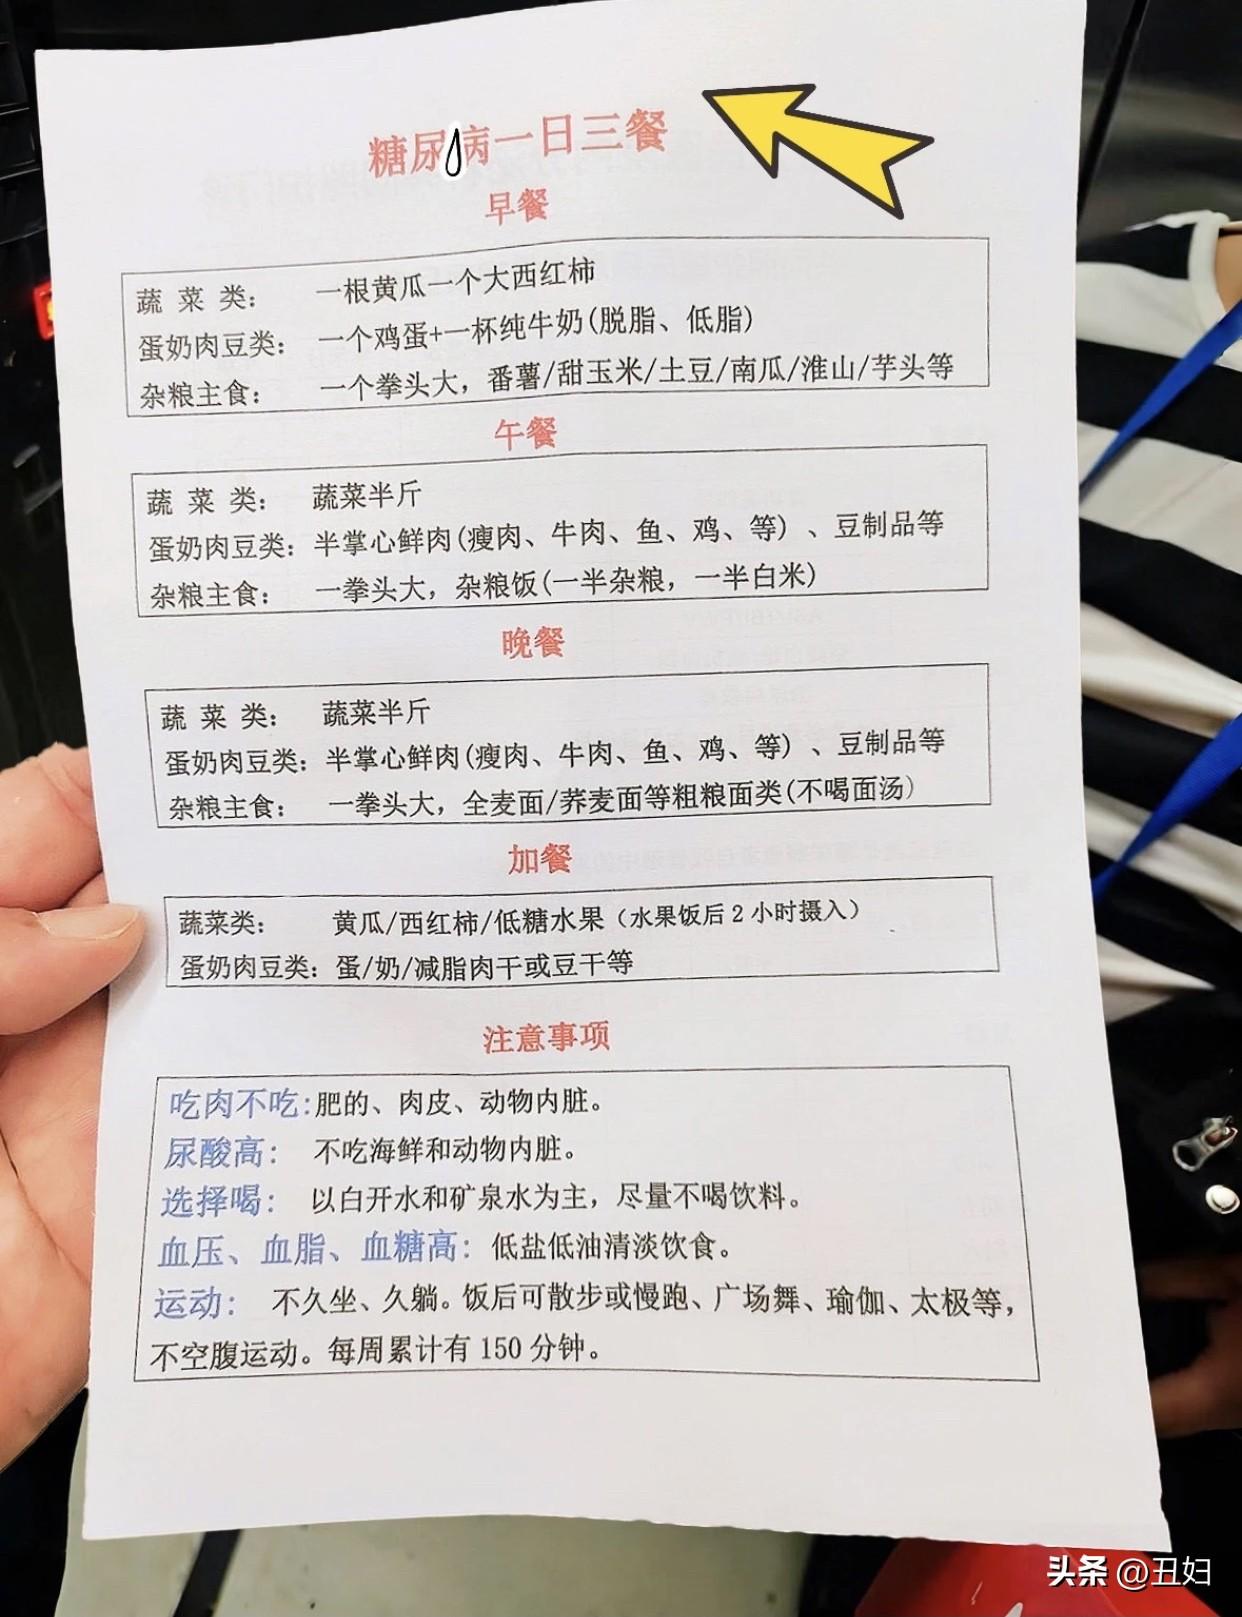 糖尿病一日三餐
早餐
蔬 菜 类： 一根黄瓜一个大西红柿
蛋奶肉豆类： 一个鸡蛋+一杯纯牛奶(脱脂、低脂)
杂粮主食： 一个拳头大，番薯/甜玉米/土豆/南瓜/淮山/芋头等
午餐
蔬 菜 类： 蔬菜半斤
蛋奶肉豆类：半掌心鲜肉(瘦肉、牛肉、鱼、鸡、等) 、豆制品等
杂粮主食： 一拳头大，杂粮饭(一半杂粮，一半白米)
晚餐
蔬 菜 类： 蔬菜半斤
蛋奶肉豆类：半掌心鲜肉(瘦肉、牛肉、鱼、鸡、等) 、豆制品等
杂粮主食： 一拳头大，全麦面/荞麦面等粗粮面类(不喝面汤)
加餐
蔬菜类： 黄瓜/西红柿/低糖水果（水果饭后2小时摄入）
蛋奶肉豆类：蛋/奶/减脂肉干或豆干等
注意事项
吃肉不吃:肥的、肉皮、动物内脏。
尿酸高： 不吃海鲜和动物内脏。
选择喝： 以白开水和矿泉水为主，尽量不喝饮料。
血压、血脂、血糖高：低盐低油清淡饮食。
运动： 不久坐、久躺。饭后可散步或慢跑、广场舞、瑜伽、太极等，
不空腹运动。每周累计有150分钟。
头条 @丑妇